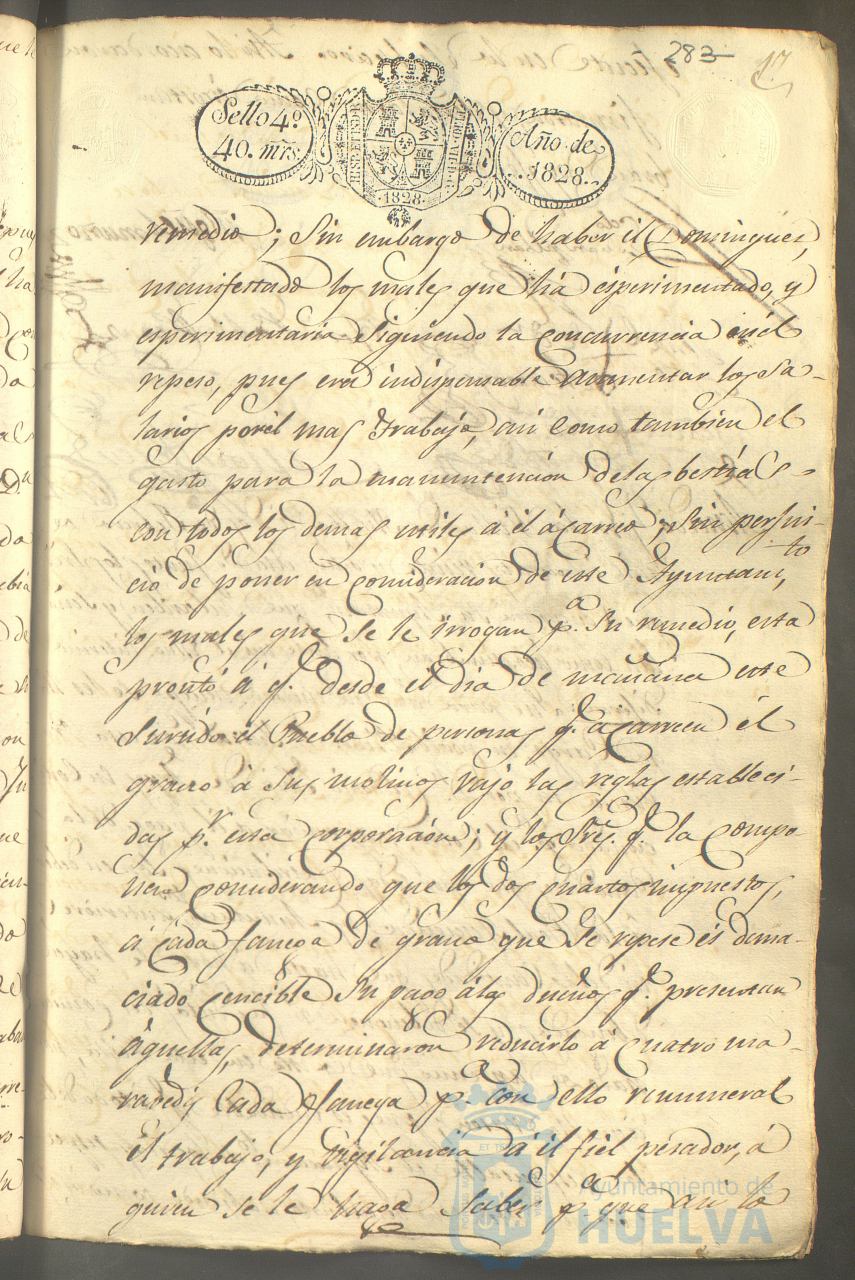 283
17
Sello 4º
40. mrs
HISP. ET IND. R
1828
Año de
1828.
remedio; sin embargo de haber él Dominguez,
manifestado los males que há ésperimentado, y
esperimentaria siguiendo la concurrencia en él
repeso, pues era indispensable aumentar los sa-
larios por él mas trabajo, asi como tambien el
gasto para la manutención de las bestias
con todos los demas utiles á él ácarreo; sin perjui-
cio de poner en consideración de este Ayuntamto,
los males que se le irrogan pª. su remedio, esta
pronto á qe. desde el dia de mañana este
surtido el Pueblo de personas qe. ácarreen él
grano á sus molinos vajo las reglas estableci-
das pr. esta corporación; y los Sres. qe. la compo
nen considerando que los dos cuartos impuestos,
á cada fanega de grano que se repese és dema-
ciado cencible su pago á los dueños qe. presentan
áquellas, determinaron reducirlo á cuatro ma-
ravedis cada fanega pª. con ello remunerar
él trabajo, y vigilancia á él fiel pesador, á
quien se le haga saber pª que asi lo
Ayuntamiento de
HUELVA